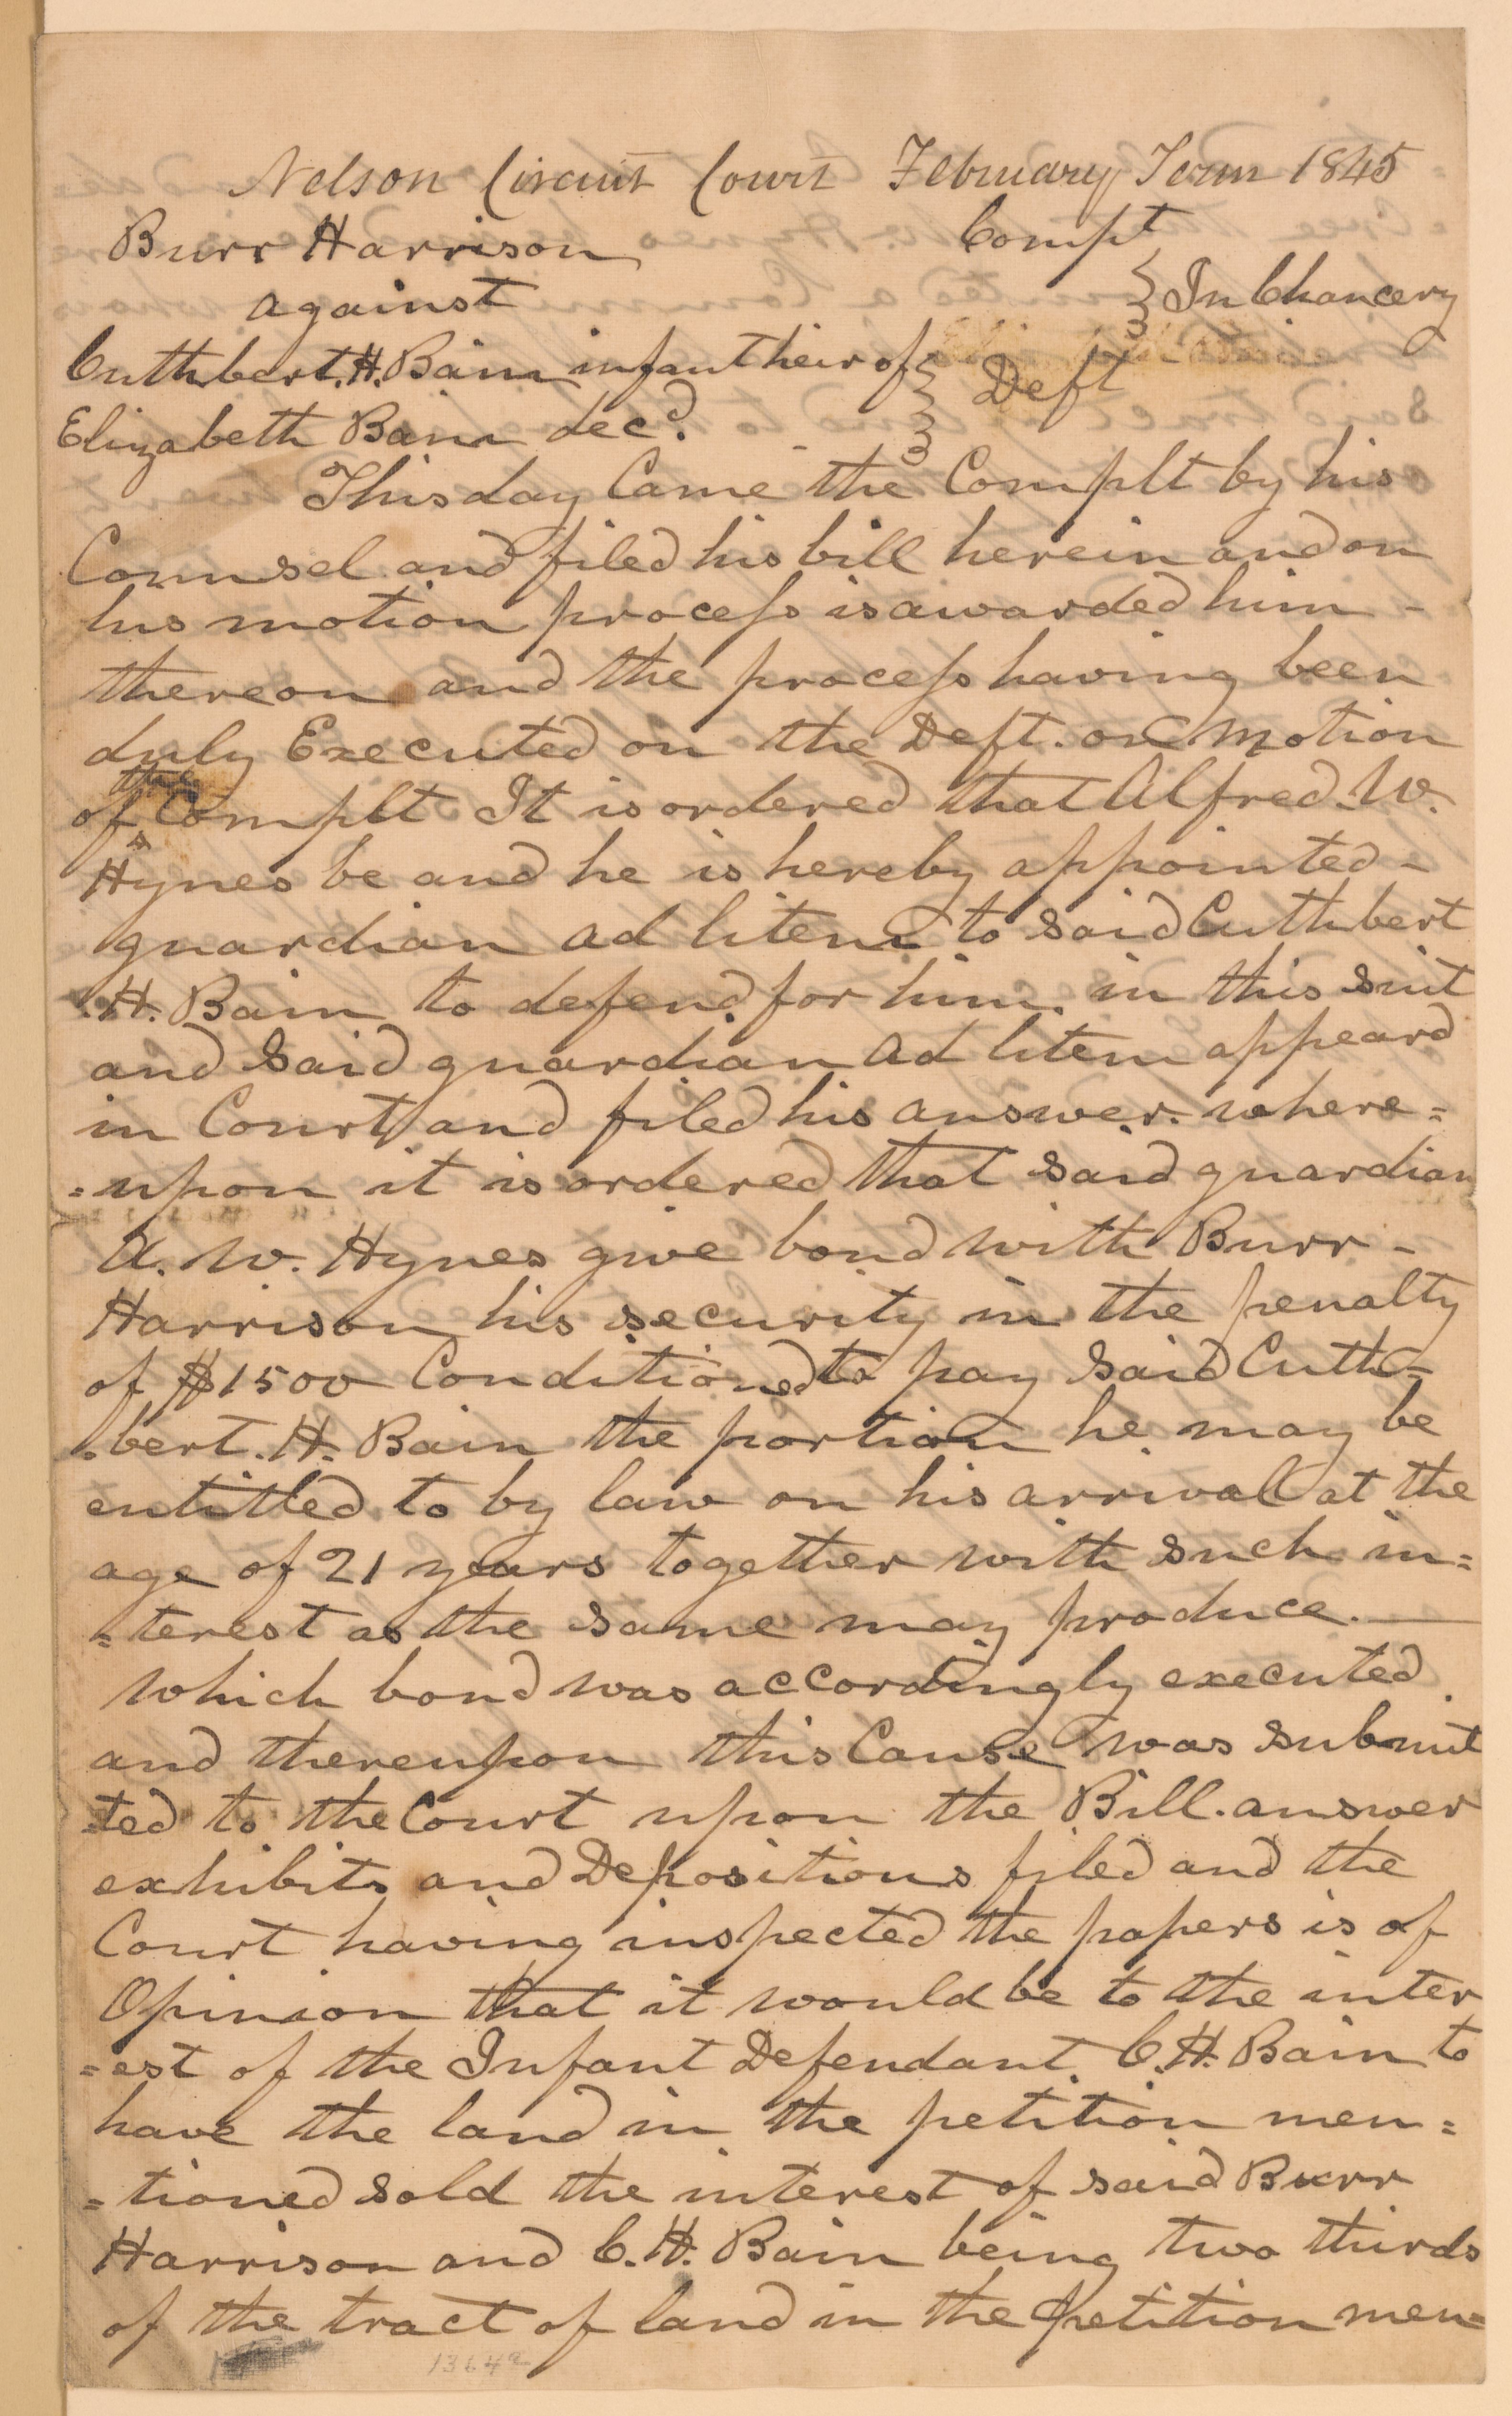 Nelson Circuit Court February Term 1845
Burr Harrison Complt
against } In Chancery
Cuthbert. H. Bain infant heir of } Deft
Elizabeth Bain decd.
This day Came the Complt by his
Counsel and filed his bill herein and on
his motion process is awarded him -
thereon and the process having been
duly Executed on the Deft. on motion
of the Complt It is ordered that Alfred. W.
Hynes be and he is hereby appointed -
guardian ad litem to said Cuthbert
.H. Bain to defend for him in this suit
and said guardian ad litem appeard
in Court and filed his answer. where=
=upon it is ordered that said guardian
A. W. Hynes give bond with Burr -
Harrison his security in the penalty
of $1500 Conditioned to pay said Cuth=
=bert. H. Bain the portion he may be
entitled to by law on his arrival at the
age of 21 years together with such in=
=terest as the same may produce. —
which bond was accordingly executed
and thereupon this Cause was submit
=ted to the Court upon the Bill. answer
exhibits and Depositions filed and the
Court having inspected the papers is of
Opinion that it would be to the inter
=est of the Infant Defendant. C. H. Bain to
have the land in the petition men=
=tioned sold the interest of said Burr
Harrison and C. H. Bain being two thirds
of the tract of land in the petition men=